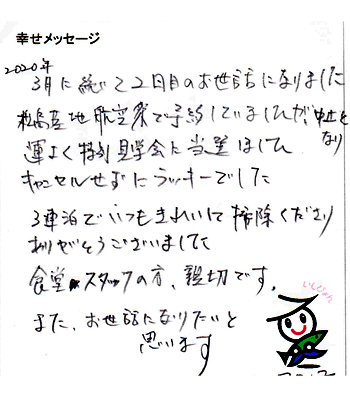 幸せメッセージ
2020年
3月に続いて2回目のお世話になりました
松島基地航空祭で予約していましたが、中止となり
運よく特別見学会に当選しました
キャンセルせずにラッキーでした
3連泊でいつもきれいに掃除くださり
ありがとうございました
食堂スタッフの方、親切です。
また、お世話になりたいと
思います